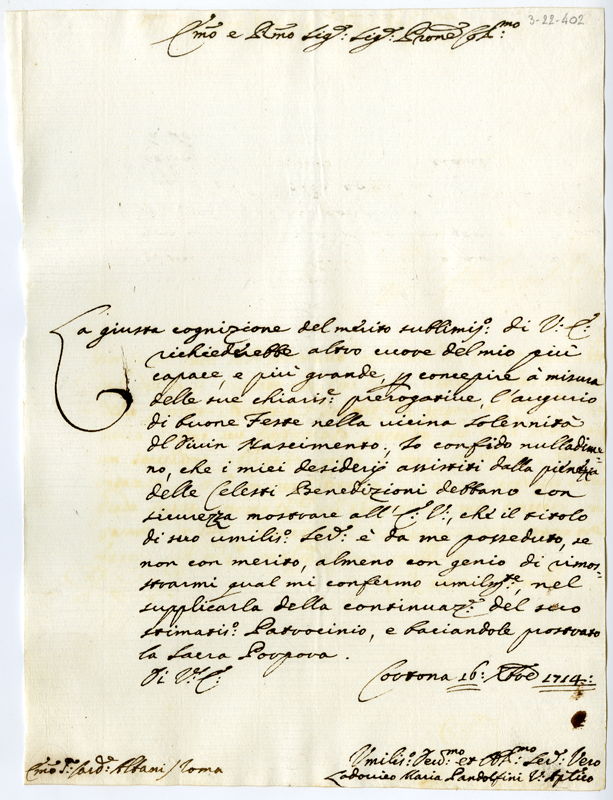 3-22-402
E.mo e R.mo Sig.r Sig.r P.rone Col.mo
La giusta cognizione del merito sublimis.o di V: E:
richiederebbe altro cuore del mio più
capace, e più grande, p concepire à misura
delle sue chiaris.e prerogative, l'augurio
di buone Feste nella vicina solennità
del Divin Nascimento; Io confido nulladime=
no, che i miei desiderij assistiti dalla pienezza
delle Celesti Benedizioni debbano con
sicurezza mostrare all' E: V:, che il titolo
di suo umilis.o Ser.e è da me posseduto, se
non con merito, almeno con genio di rimos=
trarmi qual mi confermo umilm.te, nel
supplicarla della continuaz.e del suo
stimatis.o Patrocinio, e baciandole prostrato
la Sacra Porpora.
Di V.ra E: Cortona 16: Xbre 1714:
Umilis.o Dev.mo et Obb.mo Ser.e Vero
E.mo S.r Card.l Albani / Roma Lodovico Maria Pandolfini V: Aplico